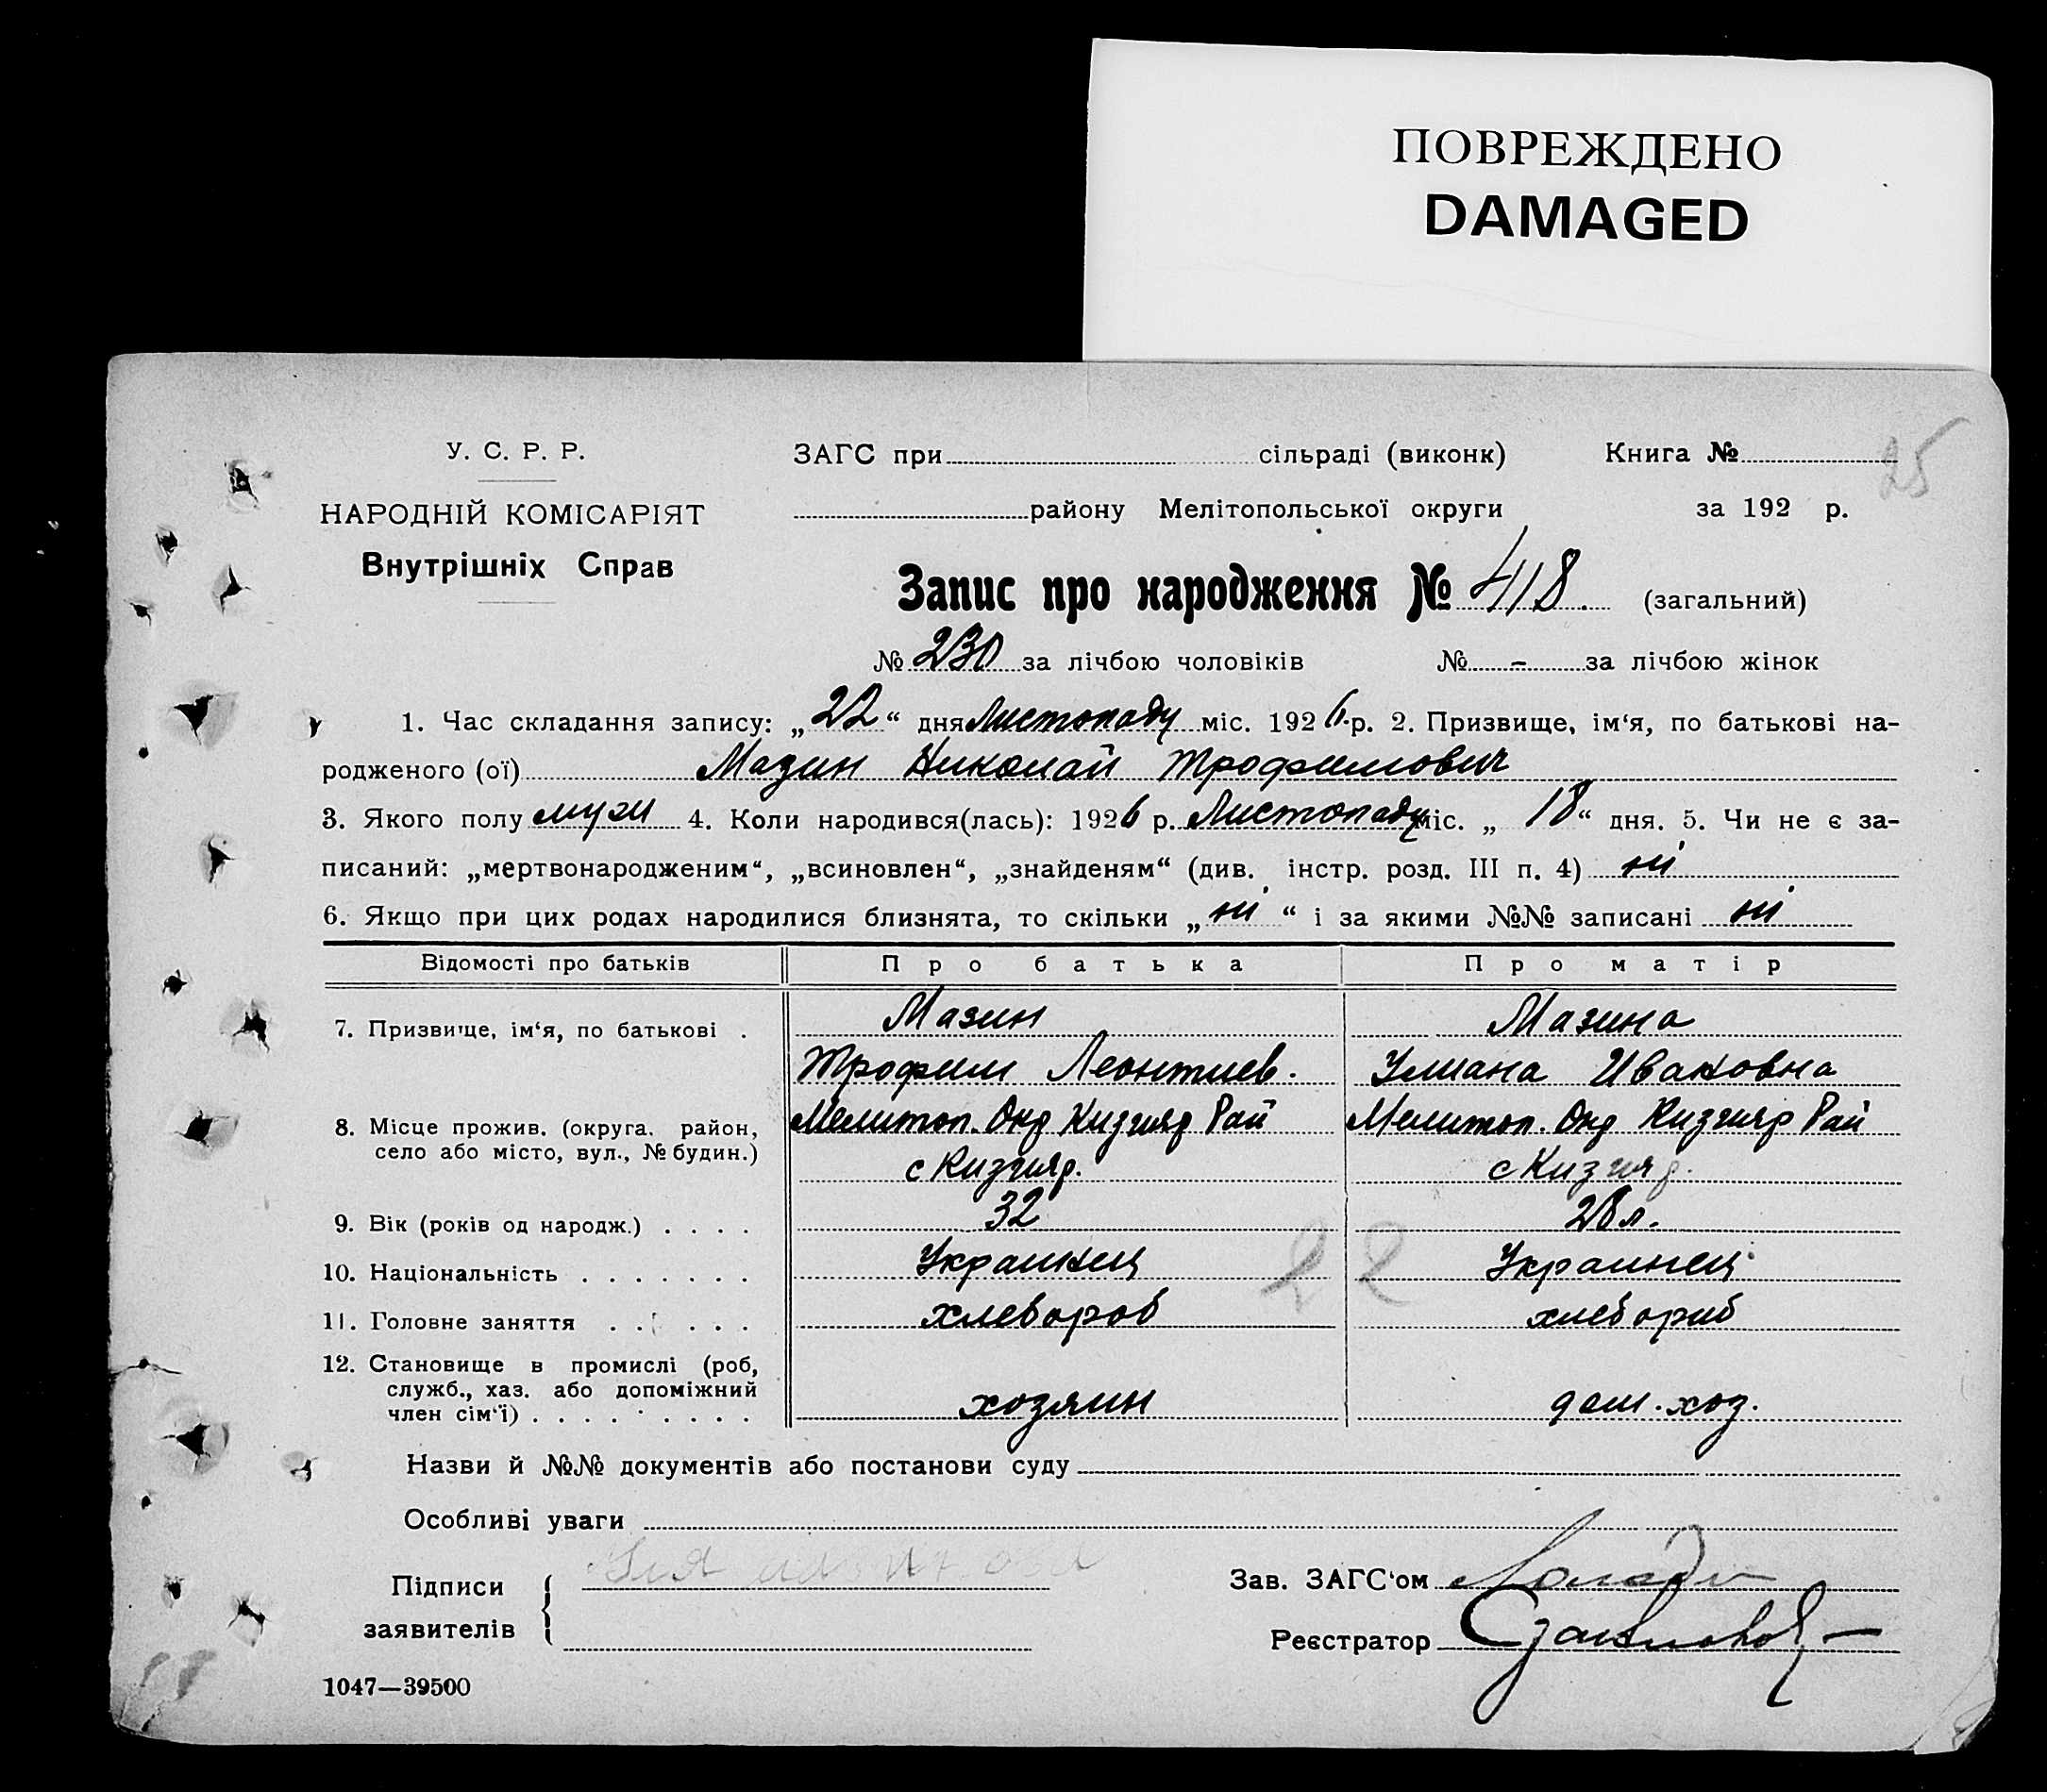 ПОВРЕЖДЕНО
DAMAGED
25
У. С. Р. Р.
НАРОДНІЙ КОМІСАРІЯТ
Внутрішніх Справ
ЗАГС при сільраді (виконк) Книга №
району Мелітопольської округи за 192 р.
Запис про народження № 418 (загальний)
№ 230 за лічбою чоловіків № - за лічбою жінок
1. Час складання запису: „22“ дня Листопаду міс. 1926 р. 2. Призвище, ім‘я, по батькові на-
родженого (ої) Мазин Николай Трофимович
3. Якого полу муж 4. Коли народився(лась): 1926 р. Листопаду міс. „18“ дня. 5. Чи не є за-
писаний: „мертвонародженим“, „всиновлен“, „знайденям“ (див. інстр. розд. III п. 4) ні
6. Якщо при цих родах народилися близнята, то скільки „ні“ і за якими №№ записані ні
Відомості про батьків Про батька Про матір
7. Призвище, ім‘я, по батькові . Мазин Мазина
Трофим Леонтиев. Улиана Ивановна
8. Місце прожив. (округа, район, Мелитоп. Окр Кизияр Рай Мелитоп. Окр Кизияр Рай
село або місто, вул., № будин.) с Кизияр. с Кизияр.
9. Вік (років од народж.) . . . . 32 28 л.
22
10. Національність . . . . . . . Украинец Украинец
11. Головне заняття . . . . . . хлебороб хлебороб
12. Становище в промислі (роб,
служб., хаз. або допоміжний
член сім‘ї) . . . . . . . . . хозяин дом. хоз.
Назви й №№ документів або постанови суду
Особливі уваги
Підписи
заявителів
Зав. ЗАГС‘ом
Реєстратор
1047—39500